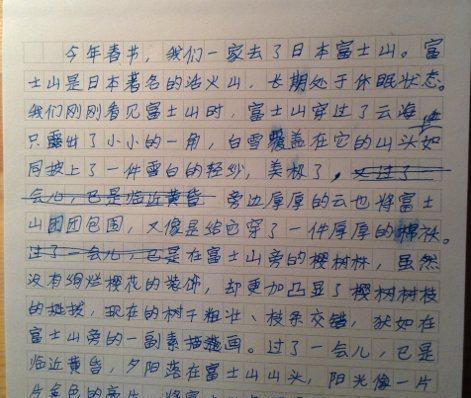 今年春节，我们一家去了日本富士山。富
士山是日本著名的活火山，长期处于休眠状态。
我们刚刚看见富士山时，富士山穿过了云海
只露出了小小的一角，白雪覆盖在它的山头如
同披上了一件雪白的轻纱，美极了，又过了
会儿，已是临近黄昏 旁边厚厚的云也将富士
山团团包围，又像是给它穿了一件厚厚的棉袄。
过了一会儿，已是在富士山旁的樱树林，虽然
没有绚烂樱花的装饰，却更加凸显了樱树树枝
的挺拔，现在的树干粗壮、枝条交错，犹如在
富士山旁的一副素描画。过了一会儿，已是
临近黄昏，夕阳落在富士山山头，阳光像一片
片金色的